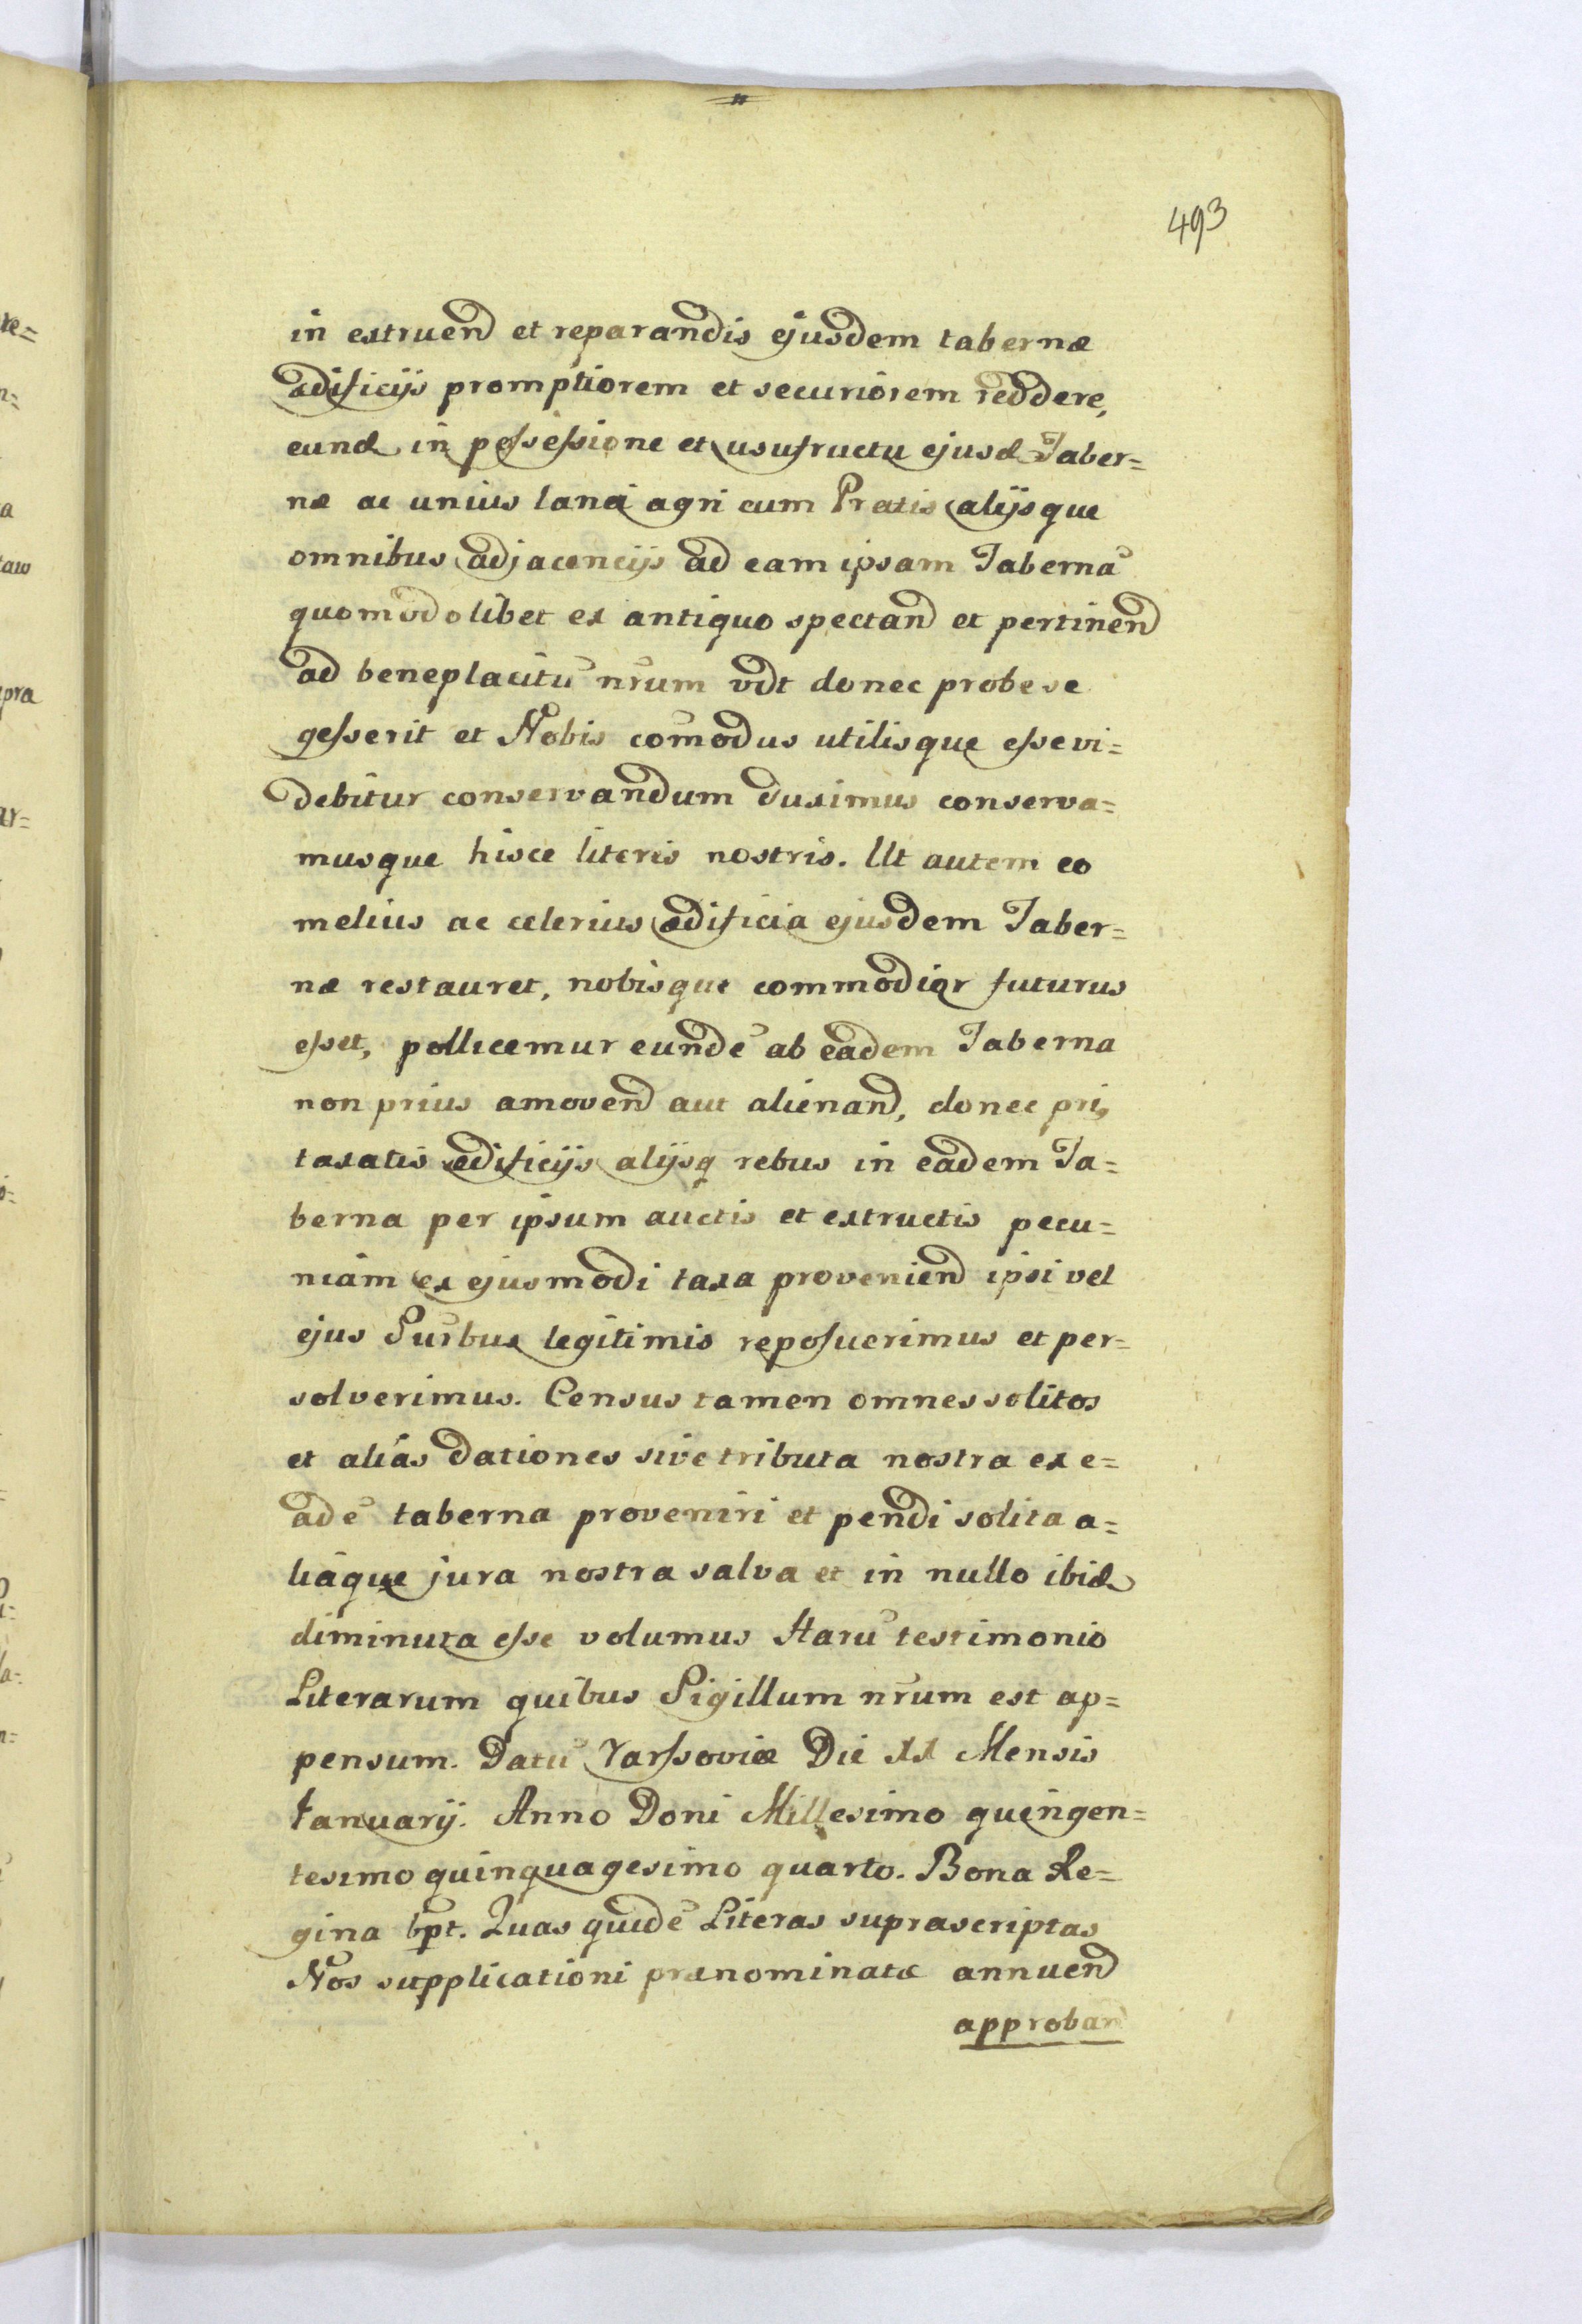 493
in extruend et reparandis ejusdem tabernæ
ædificijs promptiorem et securiorem reddere,
eund in possessione et usufructu ejusd Taber=
næ ac unius lanei agri cum Pratis alijsque
omnibus adjacencijs ad eam ipsam Tabernã
quomodolibet ex antiquo spectand et pertinend
ad beneplacitũ nrum vdt donec probe se
gesserit et Nobis comodus utilisque esse vi=
debitur conservandum duximus conserva=
musque hisce literis nostris. Ut autem eo
melius ac celerius ædificia ejusdem Taber=
næ restauret, nobisque commodior futurus
esset, pollicemur eundẽ ab eadem Taberna
non prius amovend aut alienand, donec pri,
taxatis ædificijs alijsq rebus in eadem Ta=
berna per ipsum auctis et extructis pecu=
niam ex ejusmodi taxa proveniend ipsi vel
ejus Surbus legitimis reposuerimus et per=
solverimus. Census tamen omnes solitos
et alias dationes sive tributa nostra ex e=
adẽ taberna proveniri et pendi solita a=
liaque jura nostra salva et in nullo ibid
diminuta esse volumus Harũ testimonio
Literarum quibus Sigillum nrum est ap=
pensum. Datũ Varssoviæ Die XX Mensis
Ianuarij. Anno Doni Millesimo quingen=
tesimo quinquagesimo quarto. Bona Re=
gina bpt. Quas quidẽ Literas suprascriptas
Nos supplicationi prænominatæ annuend
approban